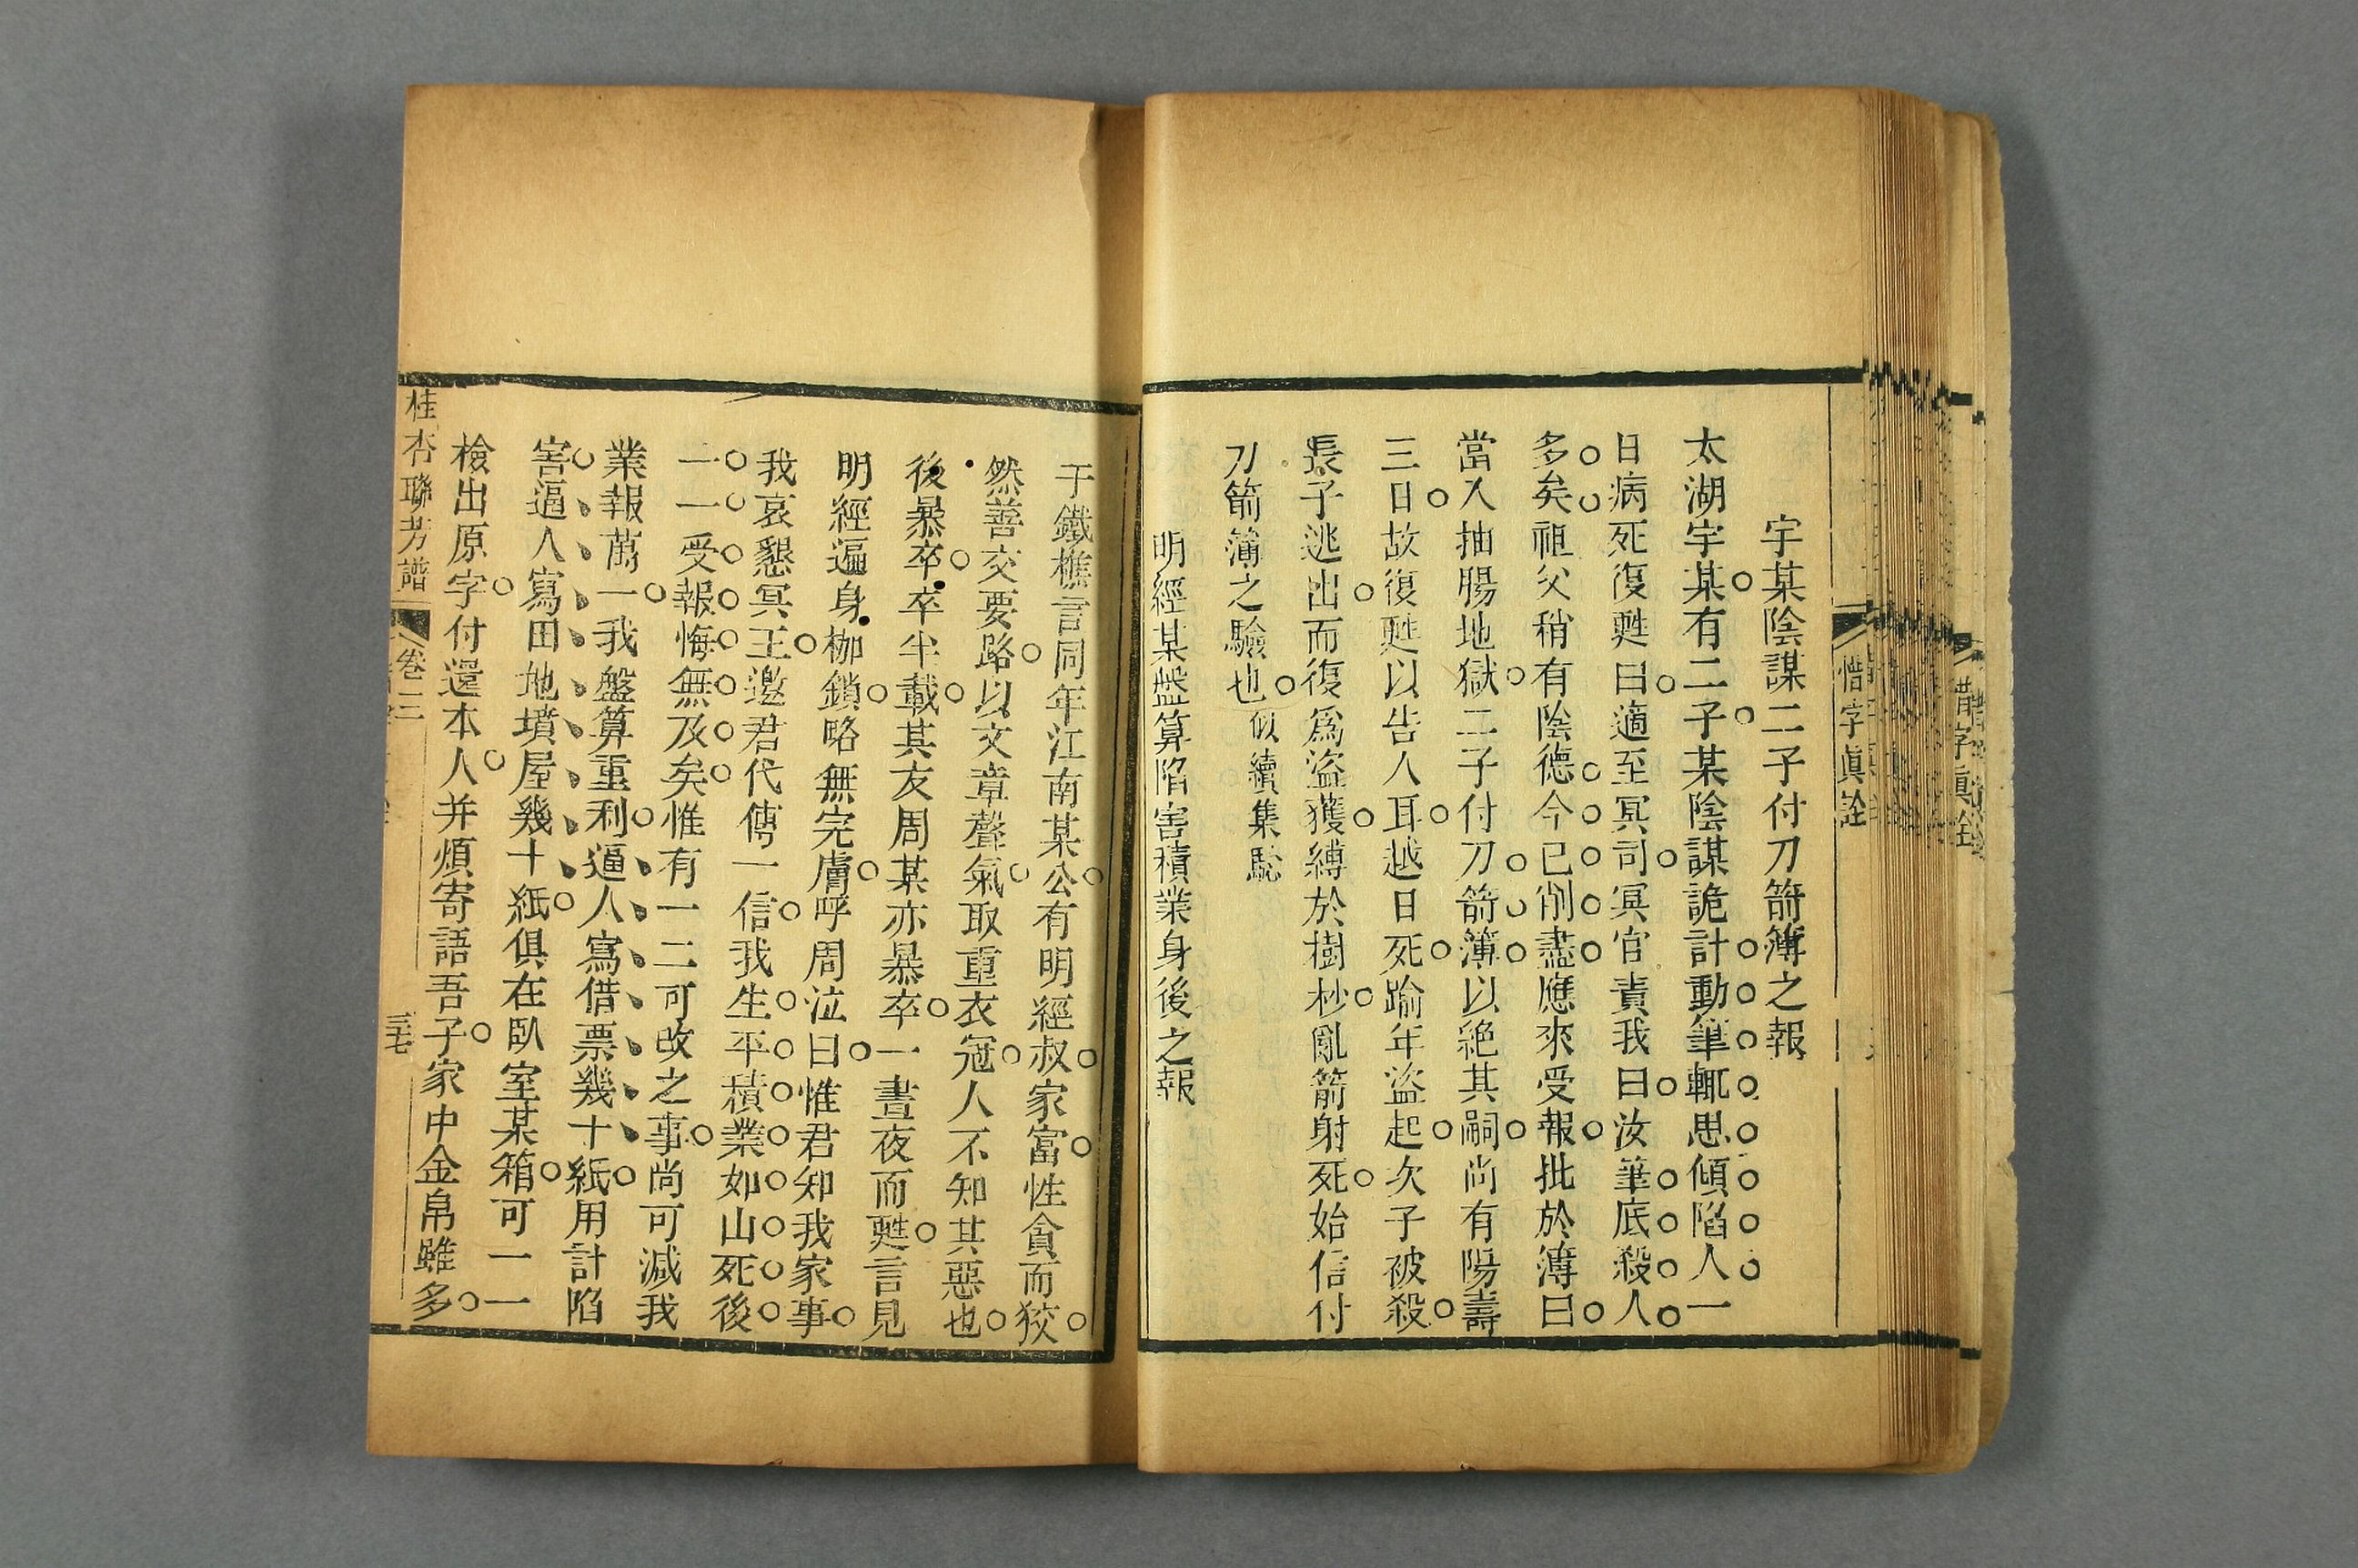 惜字眞詮
宇某陰謀二子付刀箭簿之報
太湖宇某有二子某陰謀詭計動筆輒思傾陷人一
日病死復甦曰適至冥司冥官責我曰汝筆底殺人
多矣祖父稍有陰德今已削盡應來受報批於簿曰
當入抽腸地獄二子付刀箭簿以絕其嗣尚有陽壽
三日故復甦以告人耳越日死踰年盜起次子被殺
長子逃出而復爲盜獲縛於樹杪亂箭射死始信付
刀箭簿之驗也似續集驗
明經某盤算陷害積業身後之報
于鐵樵言同年江南某公有明經叔家富性貪而狡
然善交要路以文章聲氣取重衣冠人不知其惡也
後暴卒卒半載其友周某亦暴卒一晝夜而甦言見
明經遍身枷鎖略無完膚呼周泣曰惟君知我家事
我哀懇冥王邀君代傳一信我生平積業如山死後
一一受報悔無及矣惟有一二可改之事尚可減我
業報萬一我盤算重利逼人寫借票幾十紙用計陷
害逼人寫田地墳屋幾十紙俱在臥室某箱可一一
檢出原字付還本人并煩寄語吾子家中金帛雖多
桂杏聯芳譜
卷三
三七